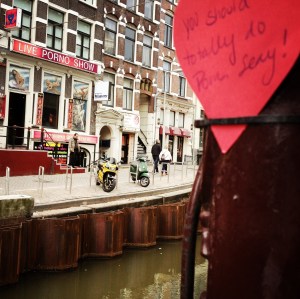 you should
totally do
Porn sexy!
LIVE PORNO SHOW